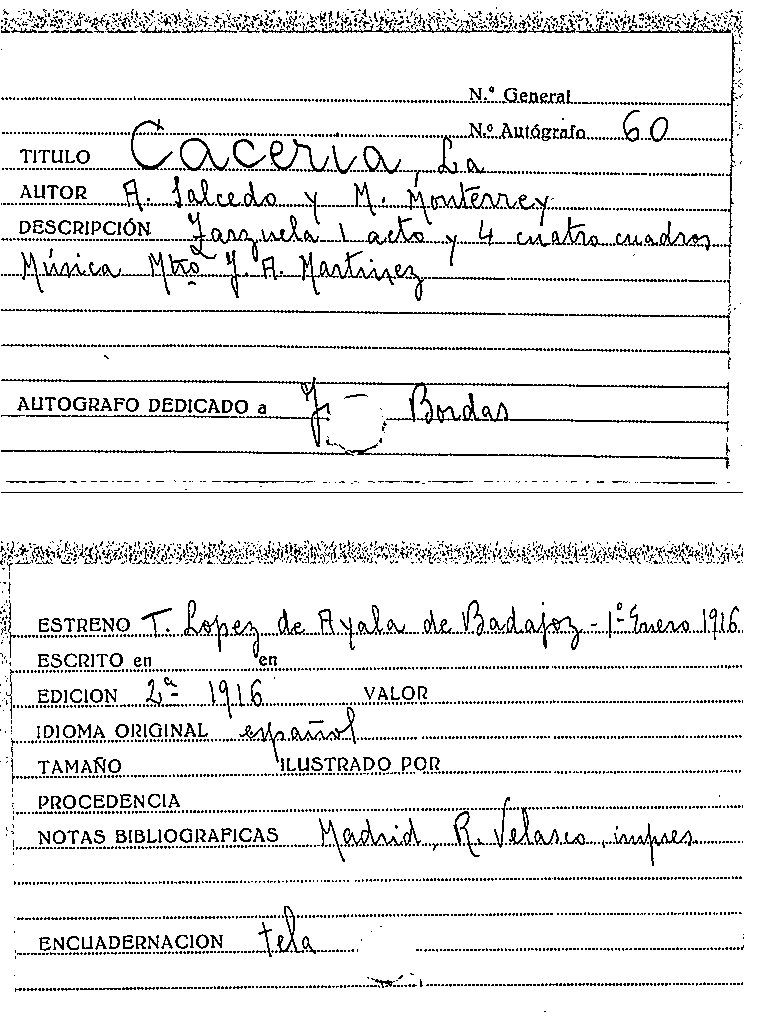 N.º General
N.º Autógrafo 60
TITULO Caceria, La
AUTOR A. Salcedo y M. Monterrey
DESCRIPCIÓN Zarzuela 1 acto y 4 cuatro cuadros
Música Mtro J. A. Martinez
AUTOGRAFO DEDICADO a J. Bordas
ESTRENO T. Lopez de Ayala de Badajoz - 1º Enero 1916
ESCRITO en en
EDICION 2ª 1916 VALOR
IDIOMA ORIGINAL español
TAMAÑO ILUSTRADO POR
PROCEDENCIA
NOTAS BIBLIOGRAFICAS Madrid, R. Velasco, impres.
ENCUADERNACION tela